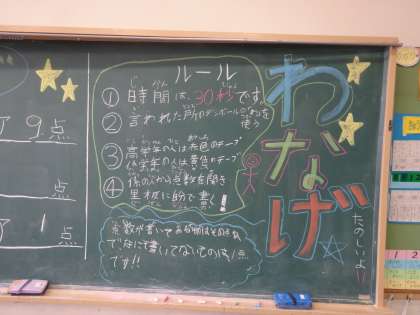 わなげ
たのしいよ!!
ルール
じ かん びょう
①時間は、30秒です。
②言われた所のダンボールのわを
使う
③高学年の人は赤色のテープ
低学年の人は黄色のテープ
④係の人から点数を聞き
黒板に自分で書く!
点数が書いてある物はその点
でなにも書いてないものは1点
です!!
9点
点
1点